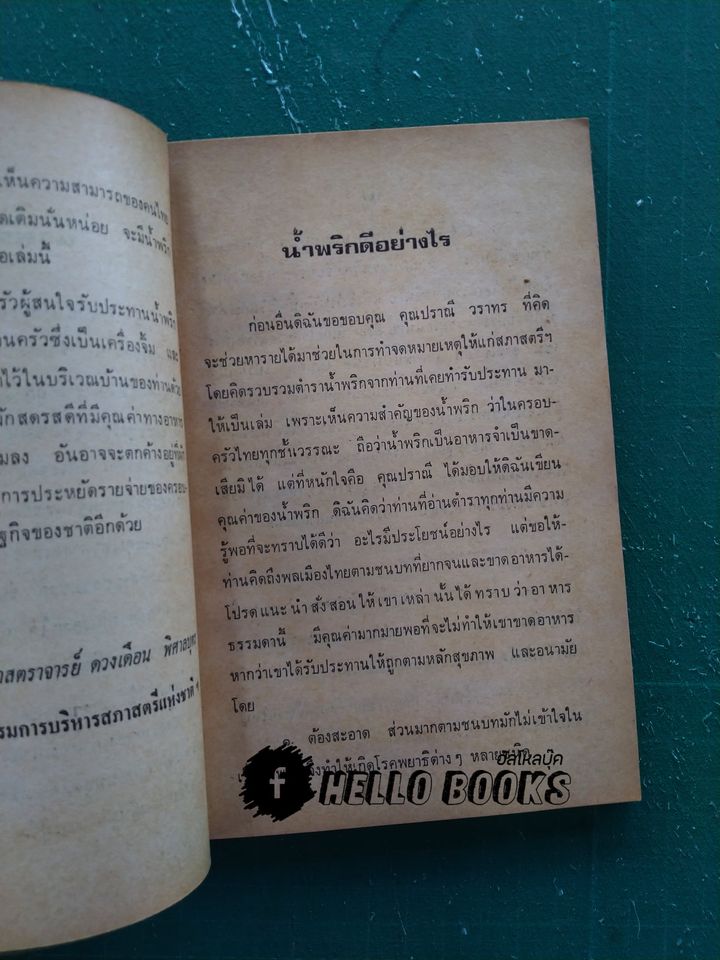 เห็นความสามารถของคนไทย
ดเติมนั้นหน่อย จะมีน้ำพริก
อเล่มนี้
รัวผู้สนใจรับประทานน้ำพริก
นครัวซึ่งเป็นเครื่องจิ้ม และ
าไว้ในบริเวณบ้านของท่านด้วย
ผักสดรสดีที่มีคุณค่าทางอาหาร
มลง อันอาจจะตกค้างอยู่ที่ผัก
การประหยัดรายจ่ายของครอบ-
ฐกิจของชาติอีกด้วย
าสตราจารย์ ดวงเดือน พิศาลบุตร
รมการบริหารสภาสตรีแห่งชาติ ฯ
น้ำพริกดีอย่างไร
ก่อนอื่นดิฉันขอขอบคุณ คุณปราณี วราทร ที่คิด
จะช่วยหารายได้มาช่วยในการทำจดหมายเหตุให้แก่สภาสตรีฯ
โดยคิดรวบรวมตำราน้ำพริกจากท่านที่เคยทำรับประทาน มา-
ให้เป็นเล่ม เพราะเห็นความสำคัญของน้ำพริก ว่าในครอบ-
ครัวไทยทุกชั้นวรรณะ ถือว่าน้ำพริกเป็นอาหารจำเป็นขาด-
เสียมิได้ แต่ที่หนักใจคือ คุณปราณี ได้มอบให้ดิฉันเขียน
คุณค่าของน้ำพริก ดิฉันคิดว่าท่านที่อ่านตำราทุกท่านมีความ
รู้พอที่จะทราบได้ดีว่า อะไรมีประโยชน์อย่างไร แต่ขอให้-
ท่านคิดถึงพลเมืองไทยตามชนบทที่ยากจนและขาดอาหารได้-
โปรดแนะนำสั่งสอนให้เขาเหล่านั้นได้ทราบว่าอาหาร
ธรรมดานี้ มีคุณค่ามากมายพอที่จะไม่ทำให้เขาขาดอาหาร
หากว่าเขาได้รับประทานให้ถูกตามหลักสุขภาพ และอนามัย
โดย
๑. ต้องสะอาด ส่วนมากตามชนบทมักไม่เข้าใจใน
ทำให้เกิดโรคพยาธิต่างๆ หลายชนิด
ฮัลโหลบุ๊ค
f HELLO BOOKS